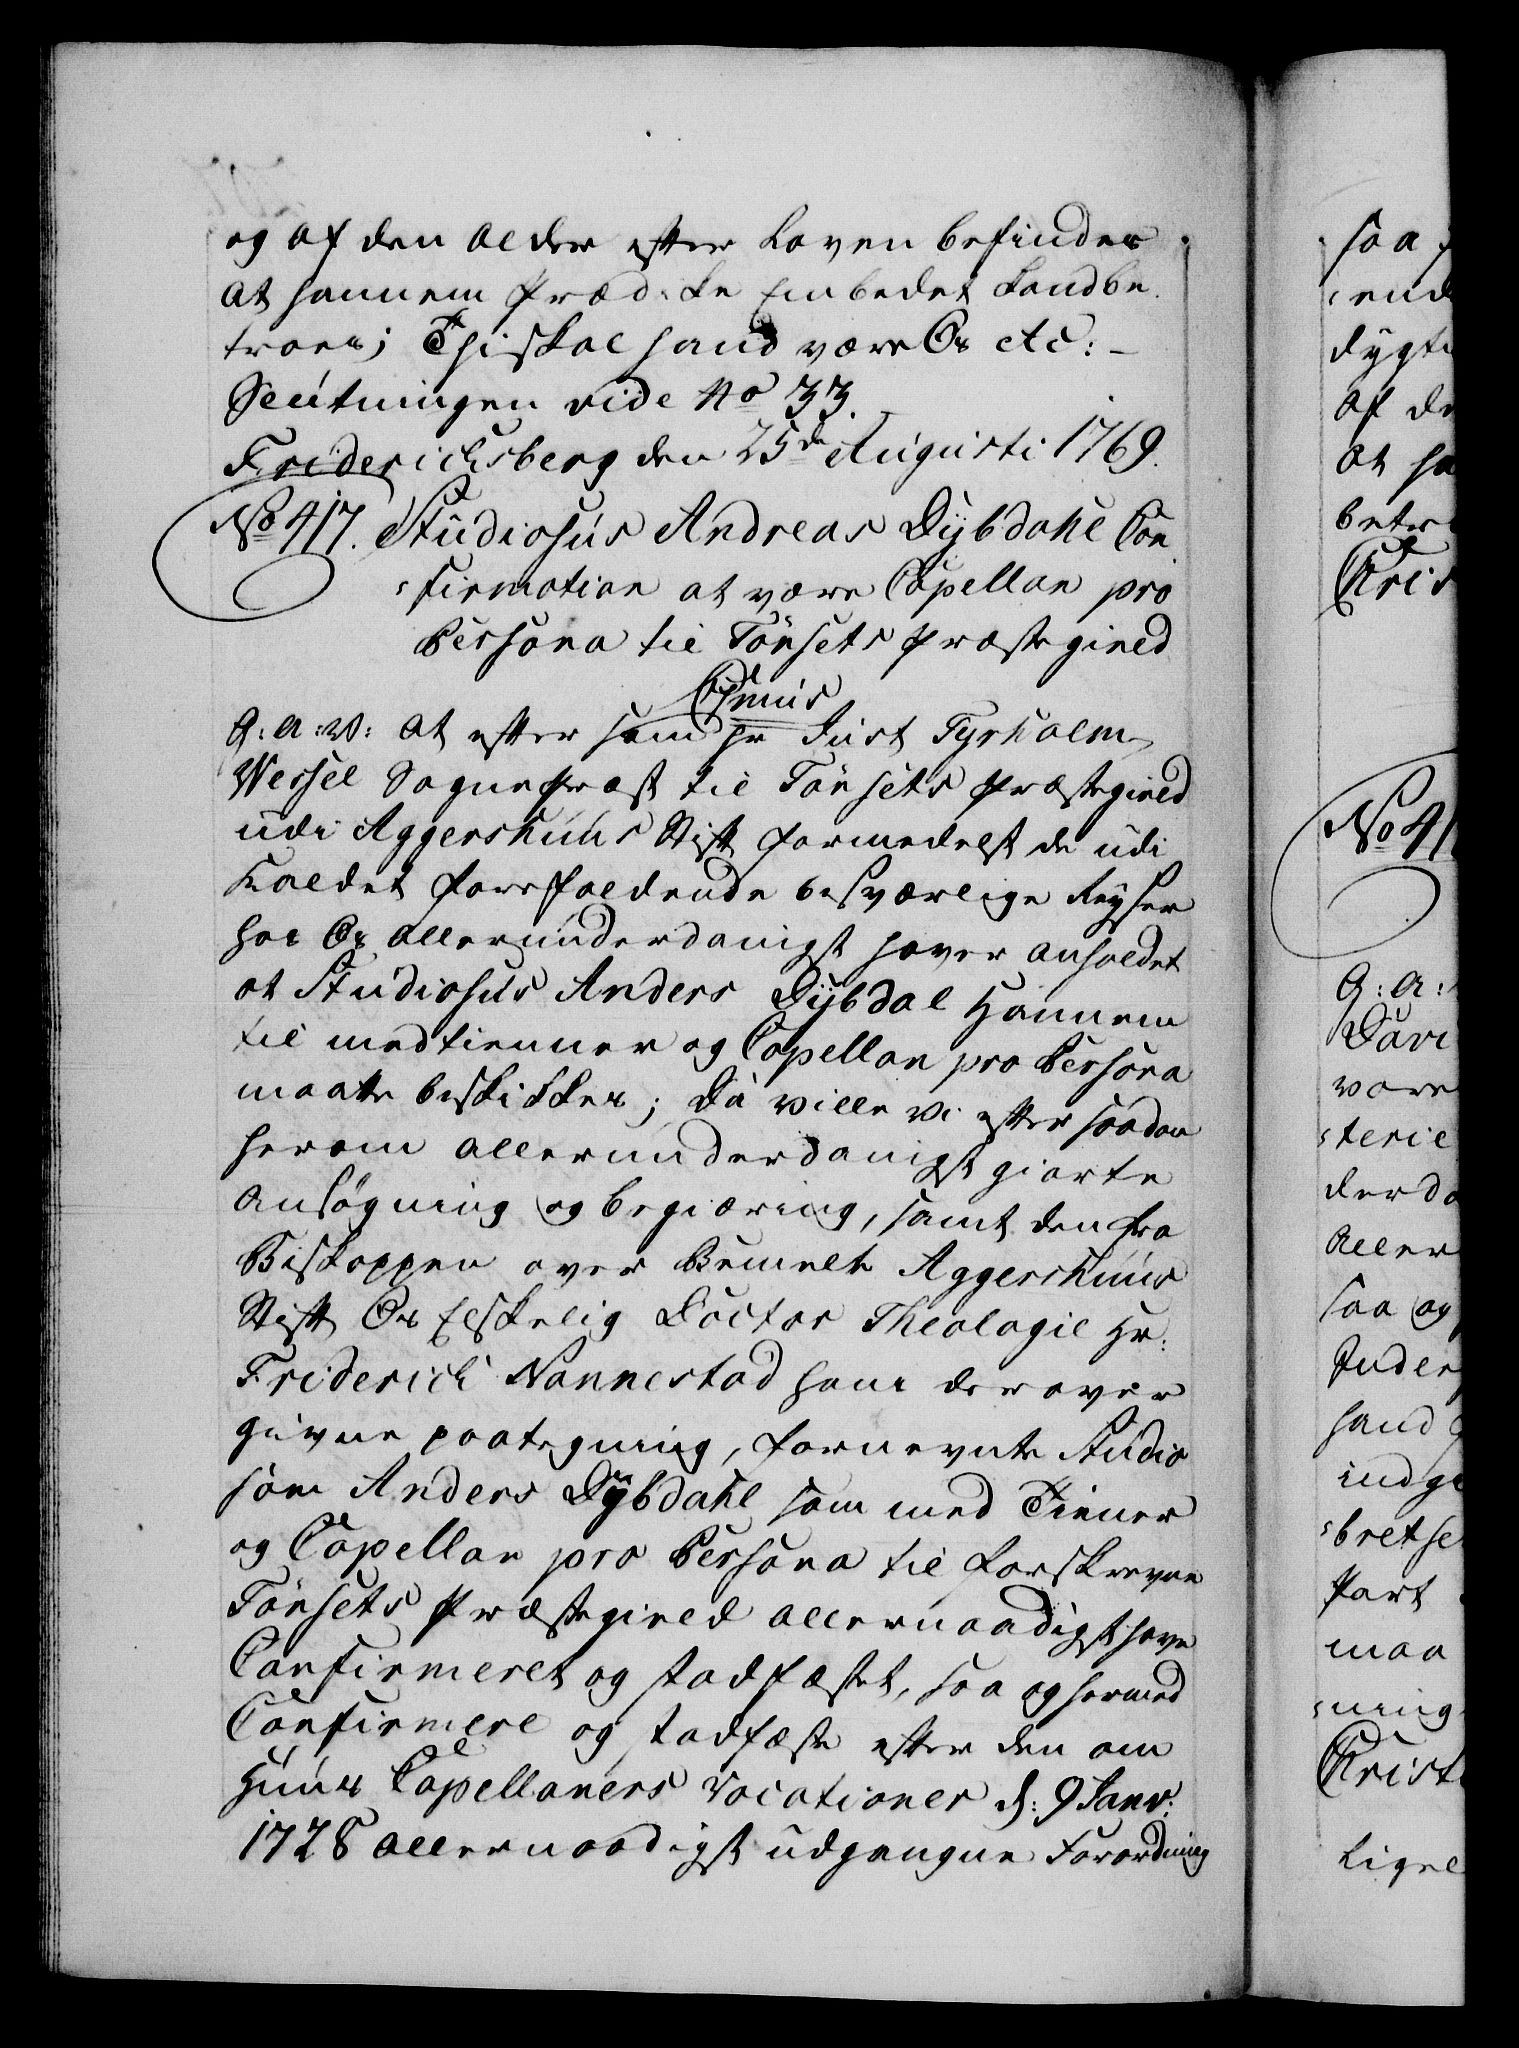 og af den Alder efter Loven befindes
at hannem Prædicke Embedet kand be
troes; Thi skal hand være Os etc: –
Slutningen vide No 33.
Friderichsberg den 25de Augusti 1769.
No 417. Studiosus Andreas Dybdahl Con
firmation at være Capellan pro
Persona til Tönsets Præstegield
C7mus
G: A: V: at efter som Hr Just Tyrholm
Wessel Sogneprest til Tönsets Præstegield
udi Aggershuus Stift formedelst de udi
Kaldet forefaldende besværlige Reyser
hos Os allerunderdanigst haver anholdet
at Studiosus Anders Dybdal Hannem
til medtienner og Capellan pro Persona
maatte beskikkes; Da ville Vi efter saadan
herom allerunderdanigst giorte
Ansögning og begiæring, samt den fra
Biskoppen over bemelte Aggershuus
Stift Os Elskelig Doctor Theologiæ Hr:
Friderich Nannestad ham derover
givne paategning, fornevnte Studio
som Anders Dybdahl som med Tiener
og Capellan pro Persona til forskrevne
Tönsets Præstegield allernaadigst have
Confirmeret og stadfæstet, saa og hermed
Confirmere og stadfæste efter den om
Huus Capellaners Vocationer d: 9 Janv:
1728 allernaadigst udgangne Forordning
saa
dygti
af de
at ha
betro
No 41
G: A:
Davi
vore
terie
derda
aller
saa og
Inder
hand
indge
bretse
Part
maa
ning
Christ
Ligel